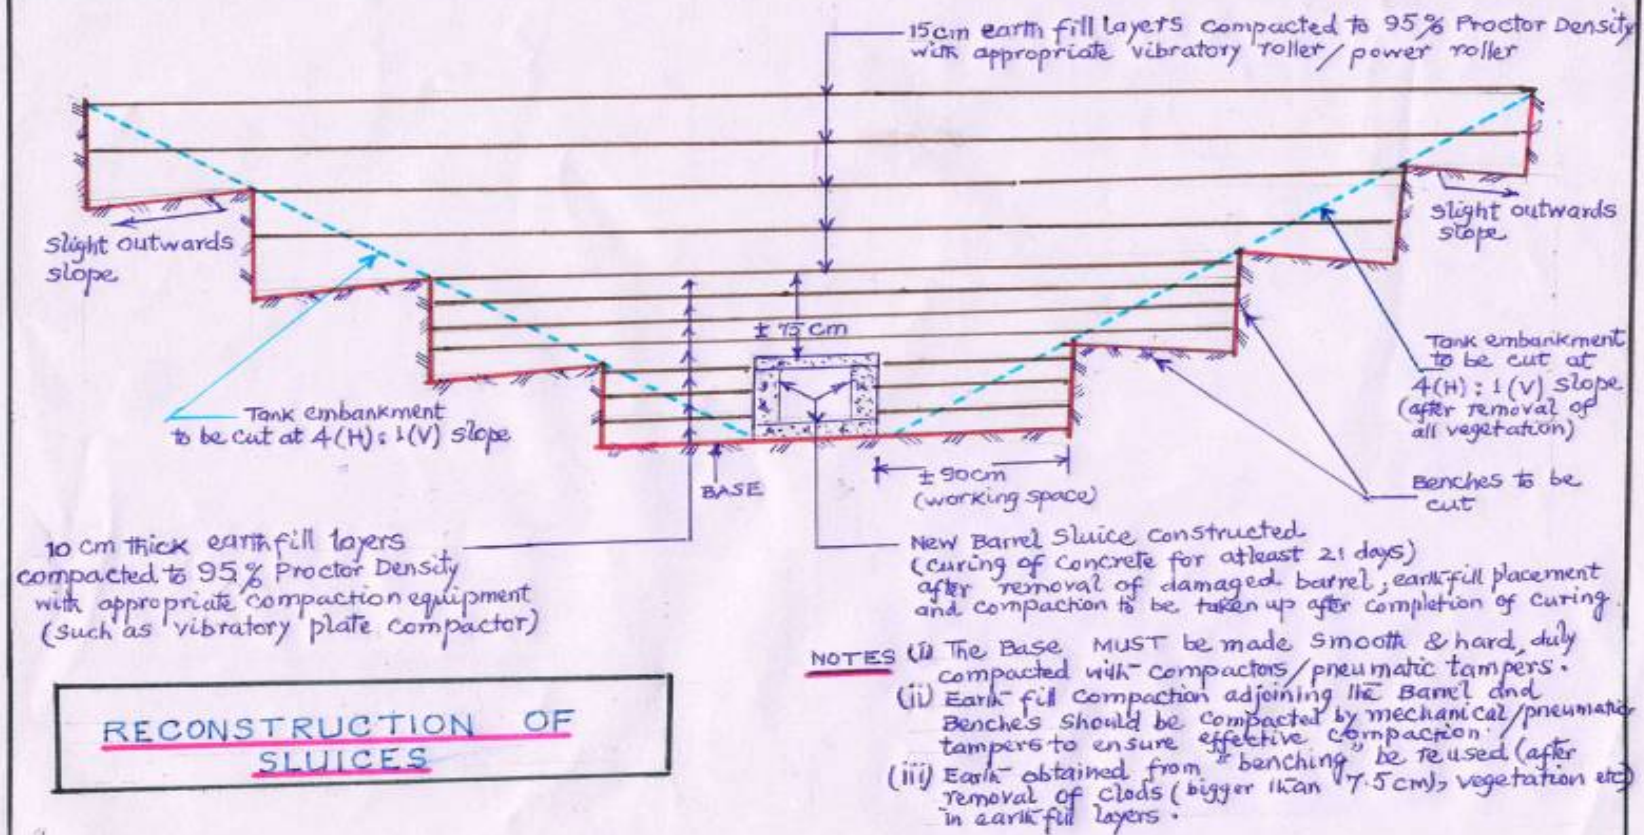 15cm earth fill layers compacted to 95% Proctor Density
with appropriate vibratory roller/power roller
Slight outwards
slope
Slight outwards
slope
± 75 cm
Tank embankment
to be cut at 4(H):1(V) slope
Tank embankment
to be cut at
4(H):1(V) slope
(after removal of
all vegetation)
BASE
± 90cm
(working space)
Benches to be
cut
10 cm thick earthfill layers
compacted to 95% Proctor Density
with appropriate compaction equipment
(such as vibratory plate compactor)
New Barrel Sluice constructed
(curing of concrete for atleast 21 days)
after removal of damaged barrel; earthfill placement
and compaction to be taken up after completion of curing
NOTES (i) The Base MUST be made smooth & hard, duly
compacted with compactors/pneumatic tampers.
(ii) Earth fill compaction adjoining the Barrel and
Benches should be compacted by mechanical/pneumatic
tampers to ensure effective compaction.
(iii) Earth obtained from "benching" be reused (after
removal of clods (bigger than 7.5cm), vegetation etc)
in earth fill layers.
RECONSTRUCTION OF
SLUICES